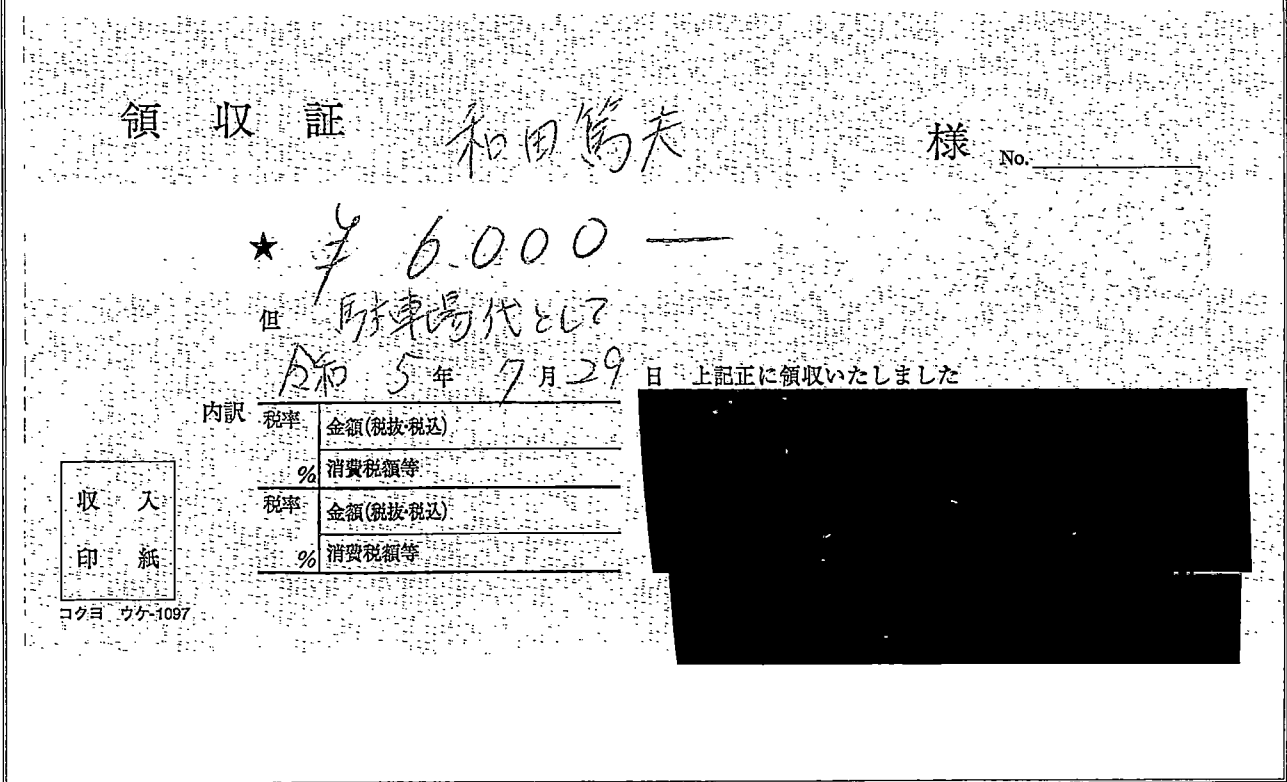 領収証 和田篤夫 様 No.
★ ¥6.000 —
但 駐車場代として
令和 5 年 7 月 29 日 上記正に領収いたしました
内訳 税率 % 金額(税抜・税込)
消費税額等
税率 % 金額(税抜・税込)
消費税額等
収入
印紙
コクヨ ウケ-1097